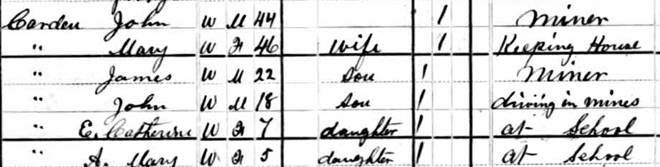 Carden John W M 44 1 Miner
" Mary W F 46 Wife 1 Keeping House
" James W M 22 Son 1 Miner
" John W M 18 Son 1 driving in mines
" E. Catherine W F 7 daughter 1 at School
" A. Mary W F 5 daughter 1 at School